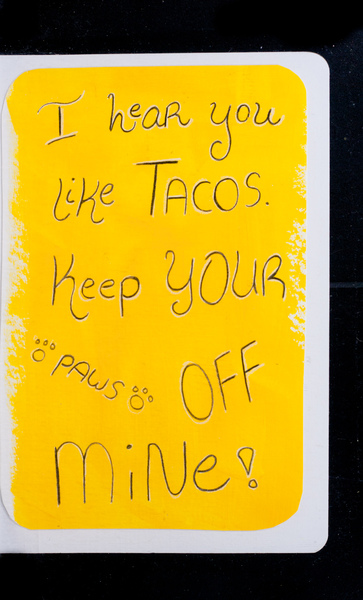 I hear you
like TACOS.
Keep YOUR
PAWS OFF
MiNe!